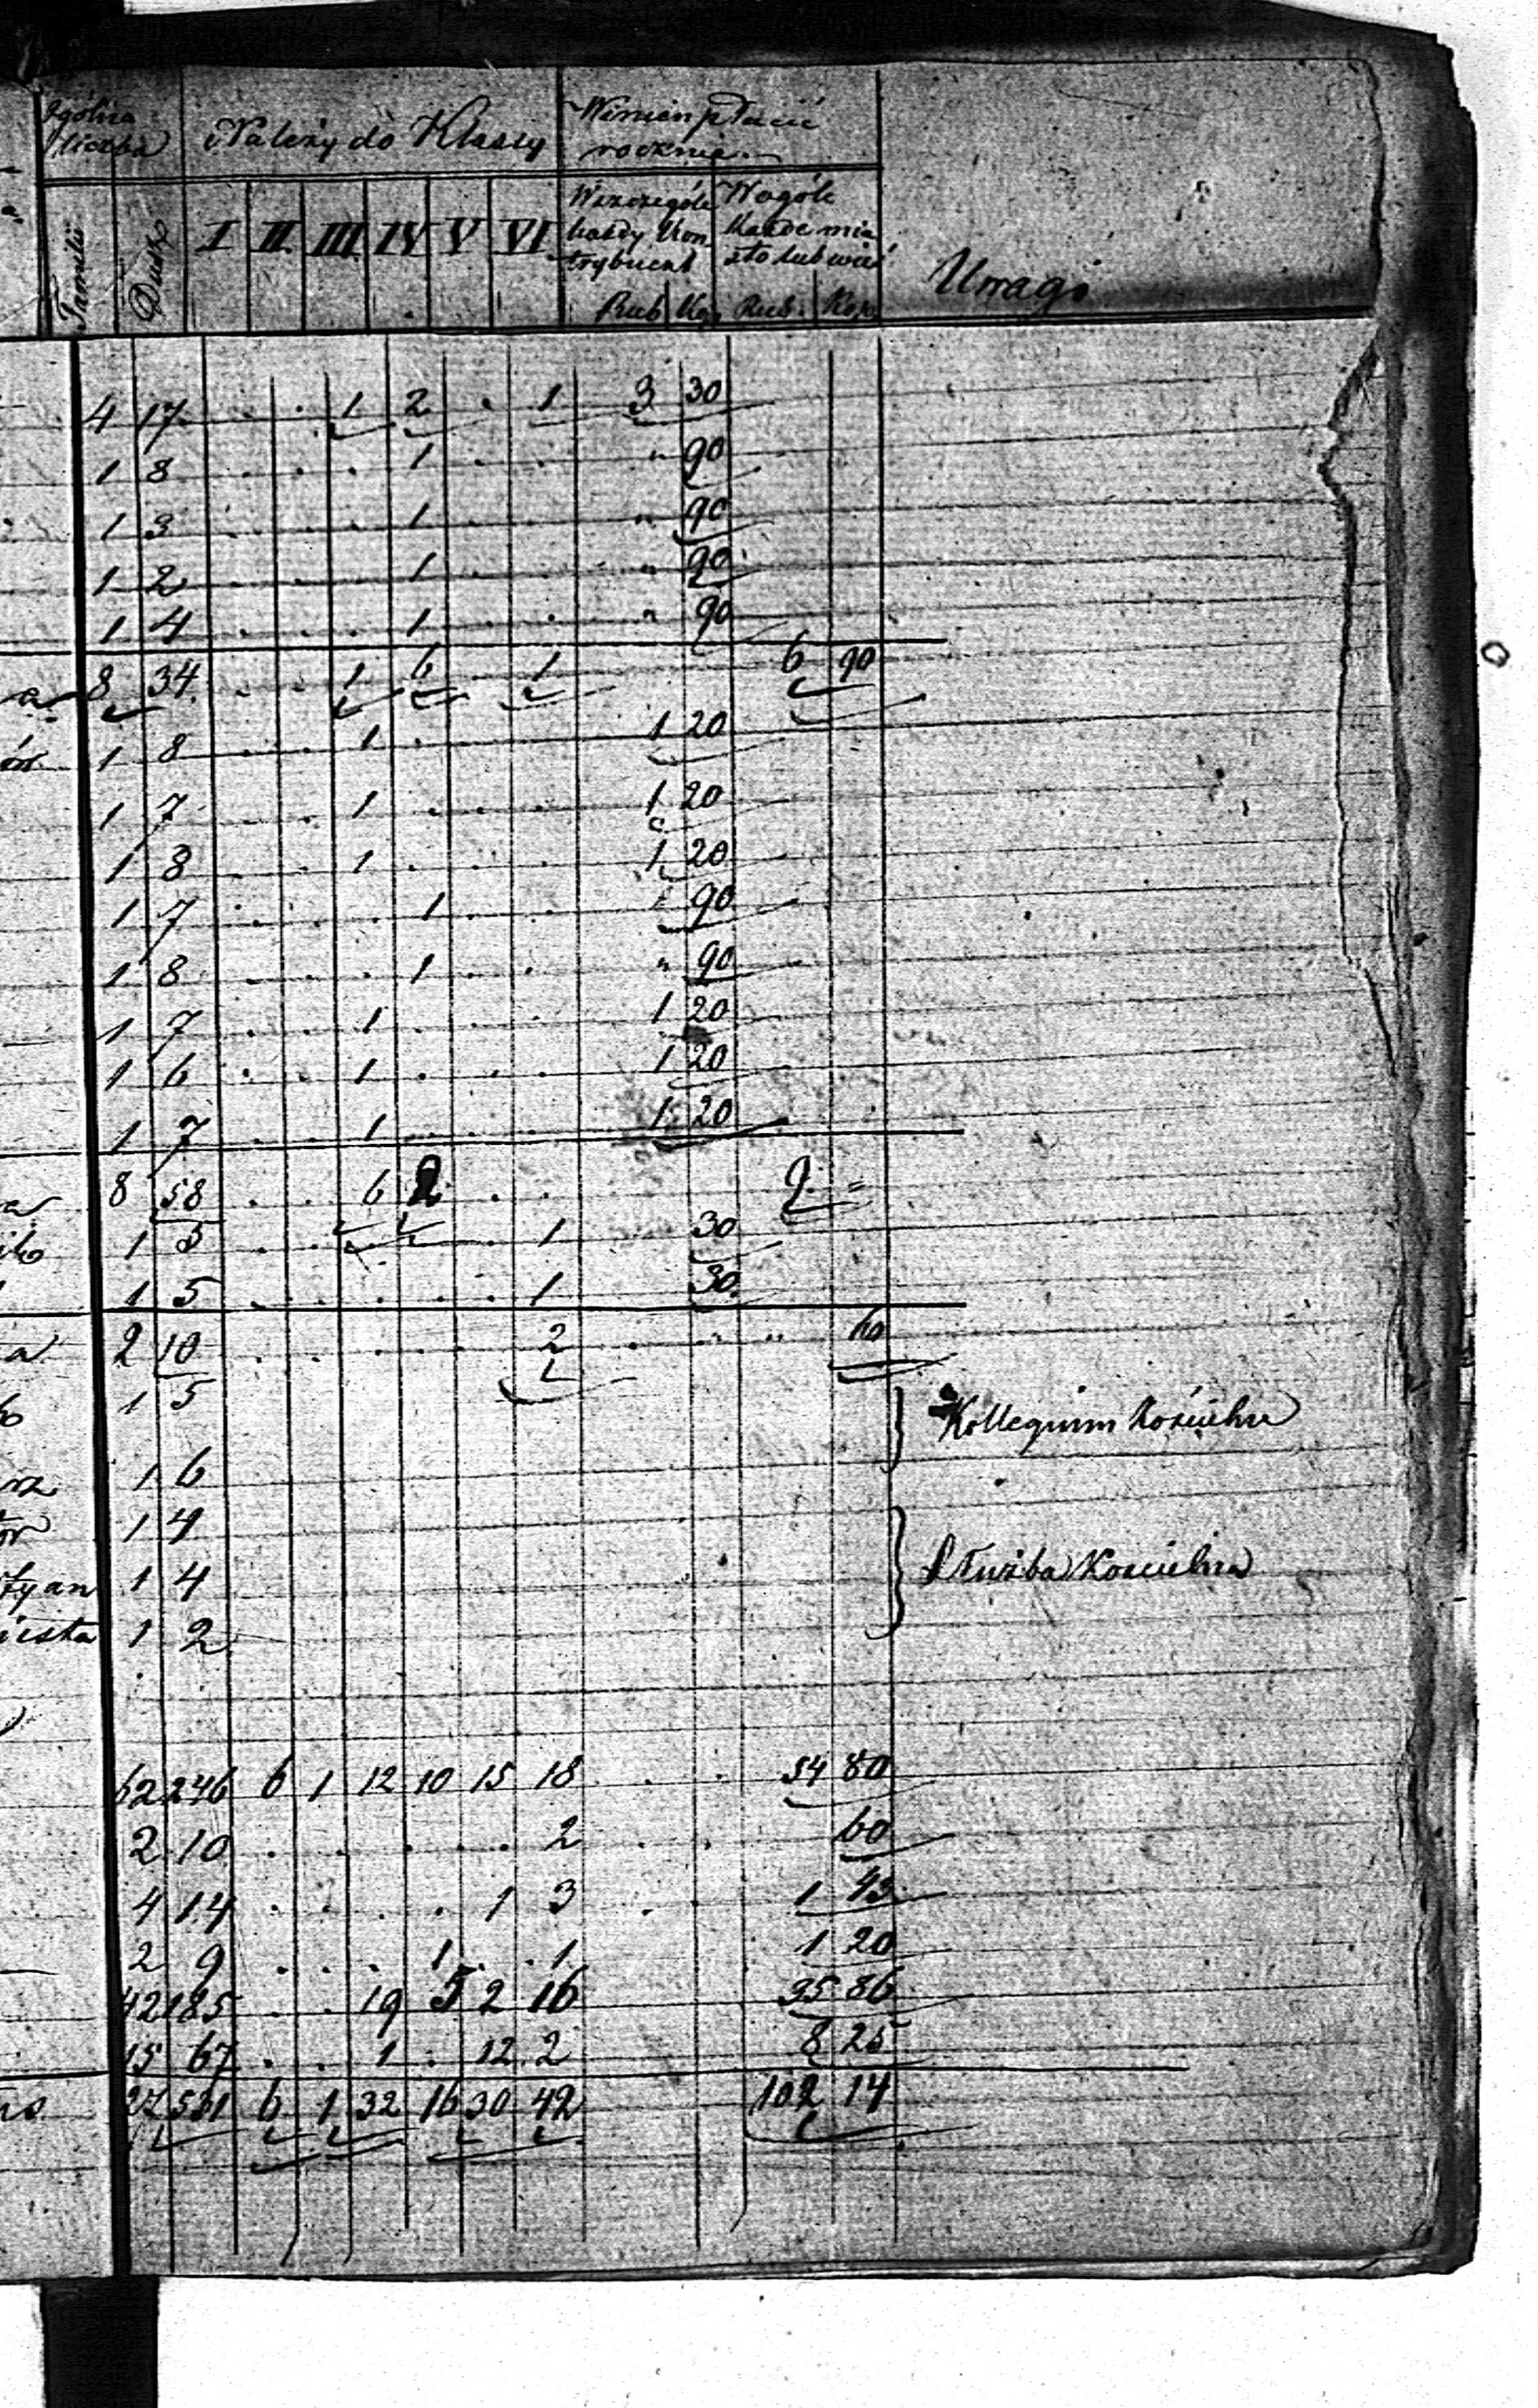 Ogólna liczba | Należy do Klassy | Winien płacić rocznie
Familii | Dusz | I | II | III | IV | V | VI | W szczególe każdy Kontrybuent Rub. Kop. | W ogóle każde miasto lub wieś Rub. Kop. | Uwagi
4 17 . . 1 2 . 1 3 30
1 8 . . . 1 . . " 90
1 3 . . . 1 . . " 90
1 2 . . . 1 . . " 90
1 4 . . . 1 . . " 90
a 8 34 . . 1 6 . 1 6 90
1 8 . . 1 . . . 1 20
1 7 . . 1 . . . 1 20
1 8 . . 1 . . . 1 20
1 7 . . . 1 . . 90
1 8 . . . 1 . . " 90
1 7 . . 1 . . . 1 20
1 6 . . 1 . . . 1 20
1 7 . . 1 . . . 1 20
a 8 58 . . 6 2 . . 9 =
1 5 . . . . . 1 30
1 5 . . . . . 1 30
a 2 10 . . . . . 2 . " " 60
1 5 Kollegium Kościelne
rz 1 6
or 1 4
tyan 1 4 Służba Kościelna
1 2
62 246 6 1 12 10 15 18 . . 54 80
2 10 . . . . . 2 . . 60
4 14 . . . . 1 3 . 1 43
2 9 . . . 1 . 1 1 20
42 185 . . 19 5 2 16 35 86
15 67 . . 1 . 12 2 8 25
27 531 6 1 32 16 30 42 102 14